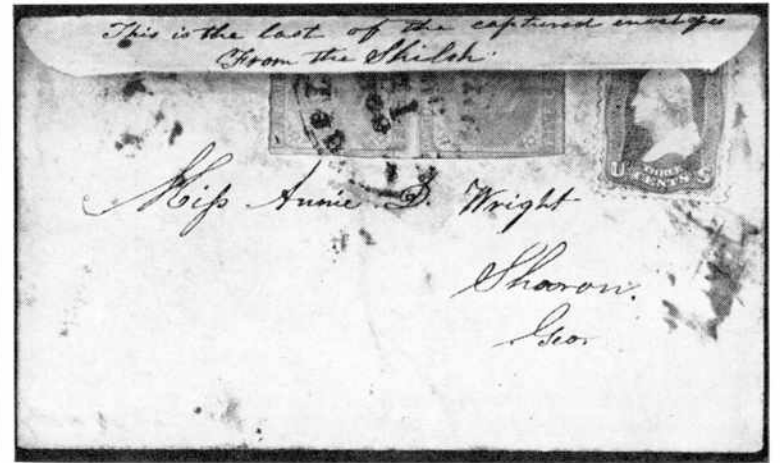 This is the last of the captured envelopes
From the Shiloh
THREE
U CENTS S
Miss Annie D. Wright
Sharon.
Geo.